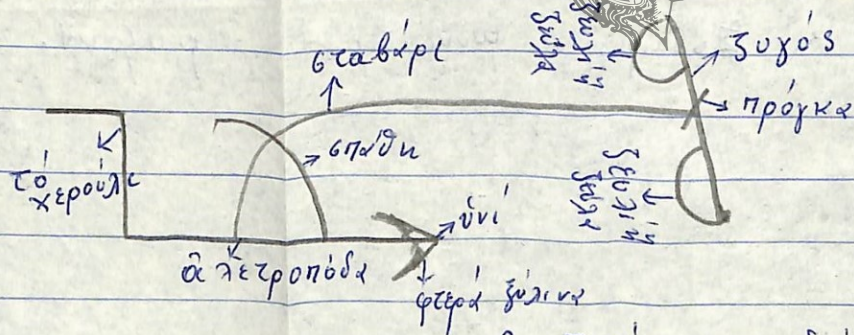 σταβάρι
ζευλιή
ζεύλα
ζυγός
πρόγκα
τό
χερούλι
σπάθη
ζευλιή
ζεύλα
ὑνί
ἀλετροπόδα
φτερά ξύλινα